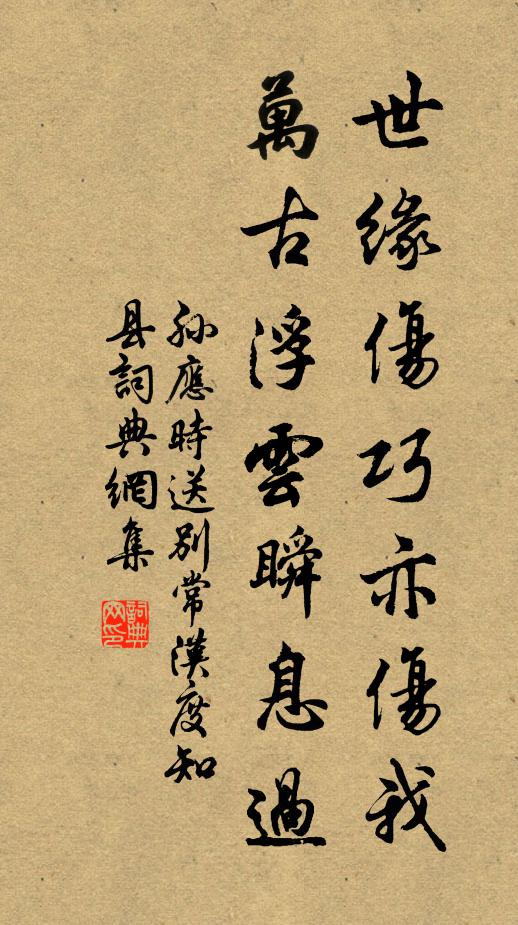 世緣傷巧亦傷我
萬古浮雲瞬息過
孙應時送別常漢度知
县詞典網集
詞典网印